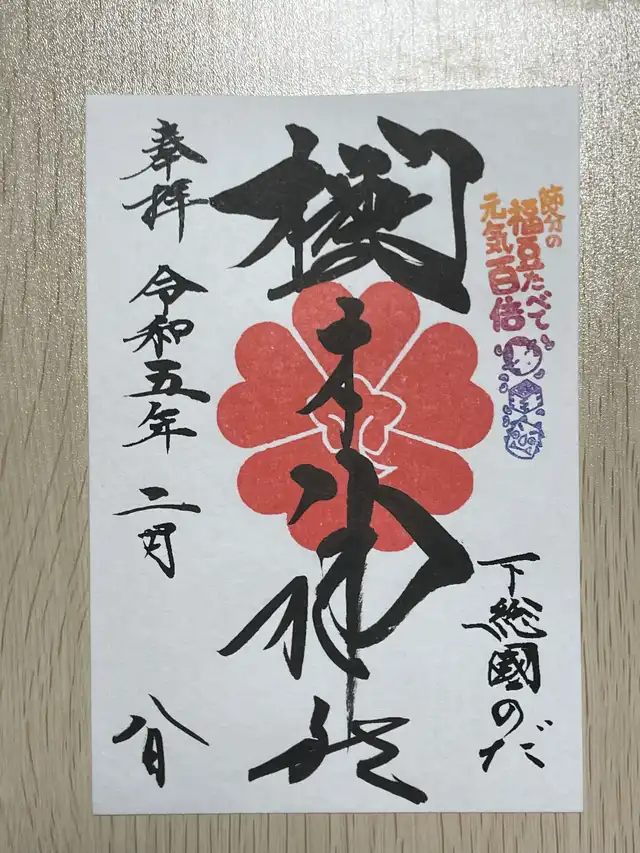 節分の
福豆たべて
元気百倍
下総國のだ
櫻木神社
奉拝 令和五年 二月 八日